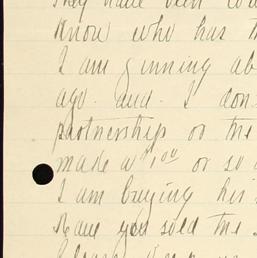 They have been
know who has th
I am ginning ab
ago. and. I don
partnership or the
make a $1.00 or so
I am buying his
Have you sold the